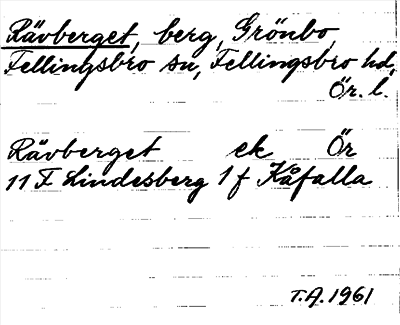 Rävberget, berg, Grönbo,
Fellingsbro sn, Fellingsbro hd,
Ör. l.
Rävberget ek Ör
11 F Lindesberg 1 f Kåfalla
T.A. 1961